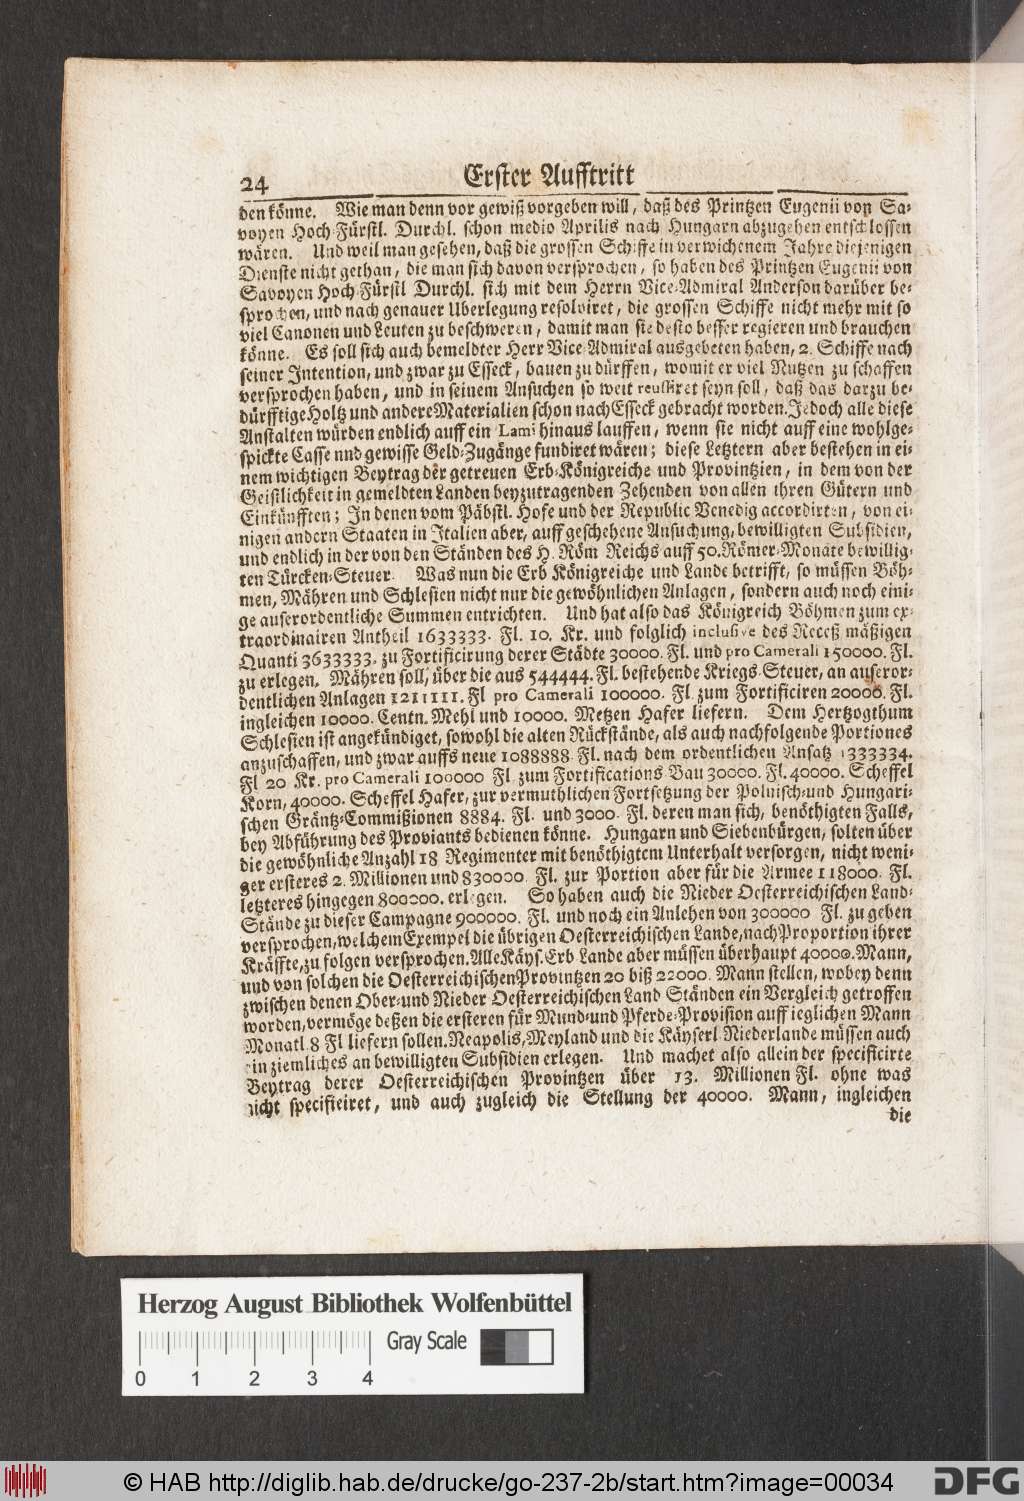 24 Erster Aufftritt
den könne. Wie man denn vor gewiß vorgeben will, daß des Printzen Eugenii von Sa-
voyen Hoch-Fürstl. Durchl. schon medio Aprilis nach Hungarn abzugehen entschlossen
wären. Und weil man gesehen, daß die grossen Schiffe in verwichenem Jahre diejenigen
Dienste nicht gethan, die man sich davon versprochen, so haben des Printzen Eugenii von
Savoyen Hoch-Fürstl Durchl. sich mit dem Herrn Vice-Admiral Anderson darüber be-
sprochen, und nach genauer Uberlegung resolviret, die grossen Schiffe nicht mehr mit so
viel Canonen und Leuten zu beschweren, damit man sie desto besser regieren und brauchen
könne. Es soll sich auch bemeldter Herr Vice-Admiral ausgebeten haben, 2. Schiffe nach
seiner Intention, und zwar zu Esseck, bauen zu dürffen, womit er viel Nutzen zu schaffen
versprochen haben, und in seinem Ansuchen so weit reussiret seyn soll, daß das darzu be-
dürfftige Holtz und andere Materialien schon nach Esseck gebracht worden. Jedoch alle diese
Anstalten würden endlich auff ein Lami hinaus lauffen, wenn sie nicht auff eine wohlge-
spickte Casse nnd gewisse Geld-Zugänge fundiret wären; diese Letztern aber bestehen in ei-
nem wichtigen Beytrag der getreuen Erb-Königreiche und Provintzien, in dem von der
Geistlichkeit in gemeldten Landen beyzutragenden Zehenden von allen ihren Gütern und
Einkünfften; In denen vom Päbstl. Hofe und der Republic Venedig accordirten, von ei-
nigen andern Staaten in Italien aber, auff geschehene Ansuchung, bewilligten Subsidien,
und endlich in der von den Ständen des H. Röm Reichs auff 50. Römer-Monate bewillig-
ten Türcken-Steuer. Was nun die Erb Königreiche und Lande betrifft, so müssen Böh-
men, Mähren und Schlesien nicht nur die gewöhnlichen Anlagen, sondern auch noch eini-
ge auserordentliche Summen entrichten. Und hat also das Königreich Böhmen zum ex-
traordinairen Antheil 1633333. Fl. 10. Kr. und folglich inclusive des Receß mäßigen
Quanti 3633333. zu Fortificirung derer Städte 30000. Fl. und pro Camerali 150000. Fl.
zu erlegen. Mähren soll, über die aus 544444. Fl. bestehende Kriegs-Steuer, an auseror-
dentlichen Anlagen 1211111. Fl pro Camerali 100000. Fl zum Fortificiren 20000. Fl.
ingleichen 10000. Centn. Mehl und 10000. Metzen Hafer liefern. Dem Hertzogthum
Schlesien ist angekündiget, sowohl die alten Rückstände, als auch nachfolgende Portiones
anzuschaffen, und zwar auffs neue 1088888 Fl. nach dem ordentlichen Ansatz 1333334.
Fl 20 Kr. pro Camerali 100000 Fl zum Fortifications Bau 30000. Fl. 40000. Scheffel
Korn, 40000. Scheffel Hafer, zur vermuthlichen Fortsetzung der Polnisch-und Hungari-
schen Gräntz-Commißionen 8884. Fl. und 3000. Fl. deren man sich, benöthigten Falls,
bey Abführung des Proviants bedienen könne. Hungarn und Siebenbürgen, solten über
die gewöhnliche Anzahl 18 Regimenter mit benöthigtem Unterhalt versorgen, nicht weni-
ger ersteres 2. Millionen und 830000 Fl. zur Portion aber für die Armee 118000. Fl.
letzteres hingegen 800000. erlegen. So haben auch die Nieder Oesterreichischen Land-
Stände zu dieser Campagne 900000. Fl. und noch ein Anlehen von 300000 Fl. zu geben
versprochen, welchem Exempel die übrigen Oesterreichischen Lande, nach Proportion ihrer
Kräffte, zu folgen versprochen. Alle Käys. Erb Lande aber müssen überhaupt 40000. Mann,
und von solchen die Oesterreichischen Provintzen 20 biß 22000. Mann stellen, wobey denn
zwischen denen Ober-und Nieder Oesterreichischen Land Ständen ein Vergleich getroffen
worden, vermöge deßen die ersteren für Mund-und Pferde-Provision auff ieglichen Mann
Monatl 8 Fl liefern sollen. Neapolis, Meyland und die Käyserl Niederlande müssen auch
ein ziemliches an bewilligten Subsidien erlegen. Und machet also allein der specificirte
Beytrag derer Oesterreichischen Provintzen über 13. Millionen Fl. ohne was
nicht specificiret, und auch zugleich die Stellung der 40000. Mann, ingleichen
die
Herzog August Bibliothek Wolfenbüttel
Gray Scale
0 1 2 3 4
© HAB http://diglib.hab.de/drucke/go-237-2b/start.htm?image=00034
DFG